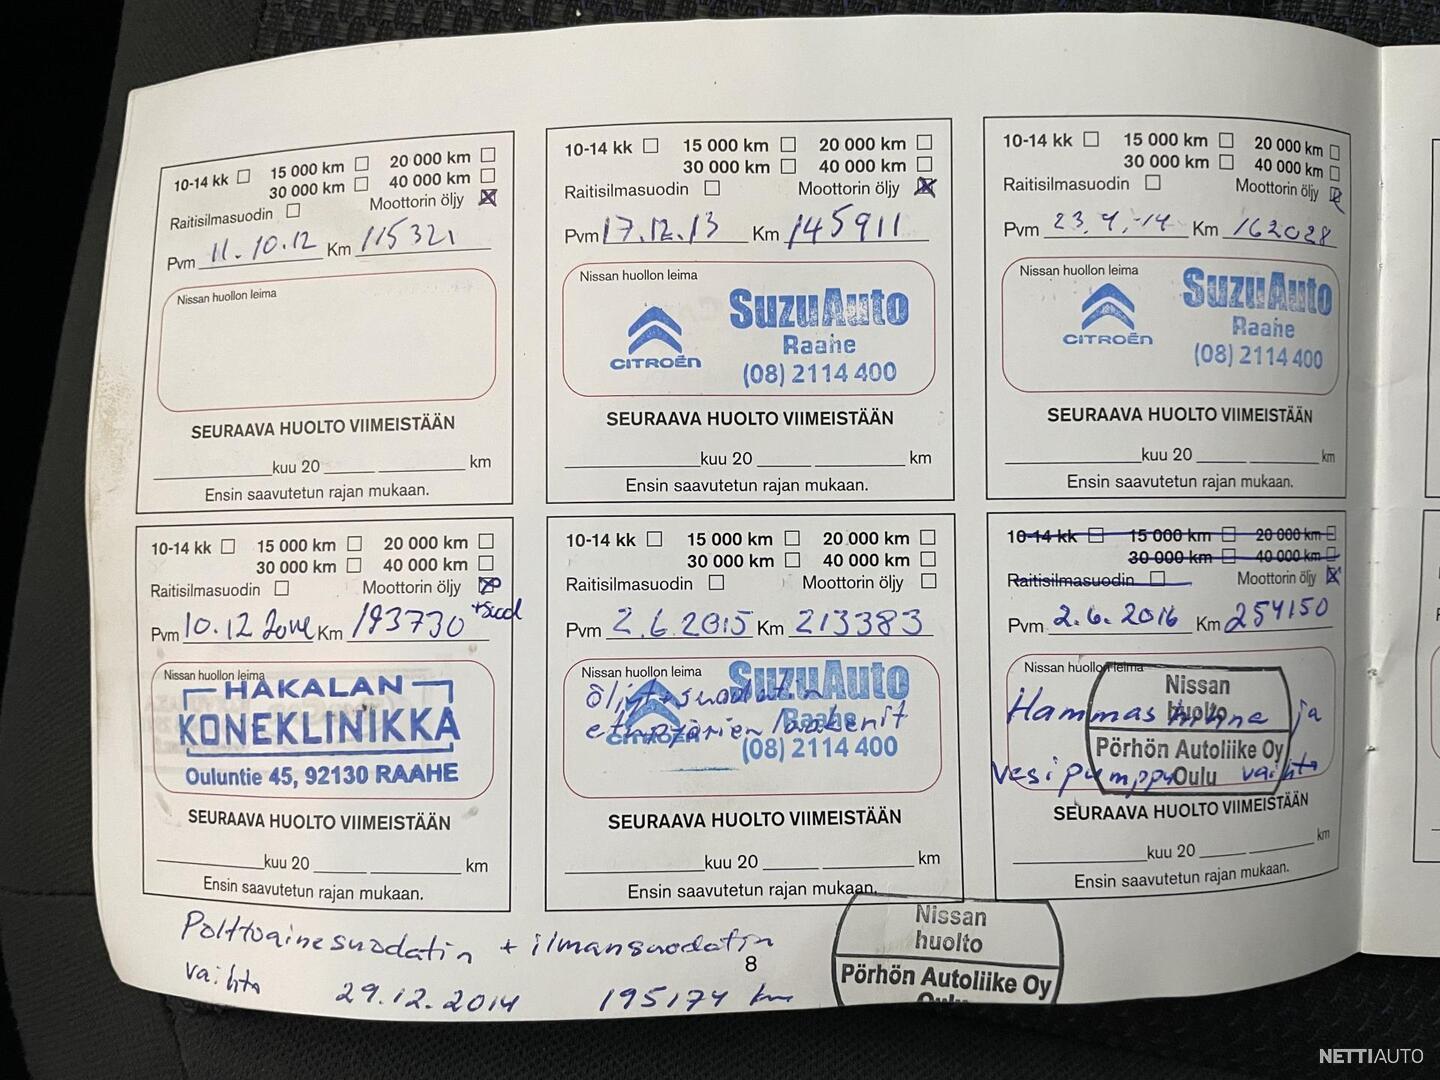 10-14 kk 15 000 km 20 000 km
30 000 km 40 000 km
Raitisilmasuodin Moottorin öljy
Pvm 11.10.12 Km 115321
Nissan huollon leima
SEURAAVA HUOLTO VIIMEISTÄÄN
kuu 20 km
Ensin saavutetun rajan mukaan.
10-14 kk 15 000 km 20 000 km
30 000 km 40 000 km
Raitisilmasuodin Moottorin öljy
Pvm 17.12.13 Km 145911
Nissan huollon leima
SuzuAuto
Raahe
CITROËN
(08) 2114 400
SEURAAVA HUOLTO VIIMEISTÄÄN
kuu 20 km
Ensin saavutetun rajan mukaan.
10-14 kk 15 000 km 20 000 km
30 000 km 40 000 km
Raitisilmasuodin Moottorin öljy
Pvm Km 162028
Nissan huollon leima
SuzuAuto
Raahe
CITROËN
(08) 2114 400
SEURAAVA HUOLTO VIIMEISTÄÄN
kuu 20 km
Ensin saavutetun rajan mukaan.
10-14 kk 15 000 km 20 000 km
30 000 km 40 000 km
Raitisilmasuodin Moottorin öljy
Pvm 10.12 Km 193730
Nissan huollon leima
HAKALAN
KONEKLINIKKA
Ouluntie 45, 92130 RAAHE
SEURAAVA HUOLTO VIIMEISTÄÄN
kuu 20 km
Ensin saavutetun rajan mukaan.
10-14 kk 15 000 km 20 000 km
30 000 km 40 000 km
Raitisilmasuodin Moottorin öljy
Pvm 2.6.2015 Km 213383
Nissan huollon leima
SuzuAuto
Raahe
CITROËN
(08) 2114 400
öljy+suodatin
etupyörien laakerit
SEURAAVA HUOLTO VIIMEISTÄÄN
kuu 20 km
Ensin saavutetun rajan mukaan.
10-14 kk 15 000 km 20 000 km
30 000 km 40 000 km
Raitisilmasuodin Moottorin öljy
Pvm 2.6.2016 Km 254150
Nissan huollon leima
Nissan
huolto
Pörhön Autoliike Oy
Oulu
Hammashihna ja
vesipumppu vaihto
SEURAAVA HUOLTO VIIMEISTÄÄN
kuu 20 km
Ensin saavutetun rajan mukaan.
Polttoainesuodatin + ilmansuodatin
vaihto 29.12.2014 195174 km
8
Nissan
huolto
Pörhön Autoliike Oy
Oulu
NETTIAUTO